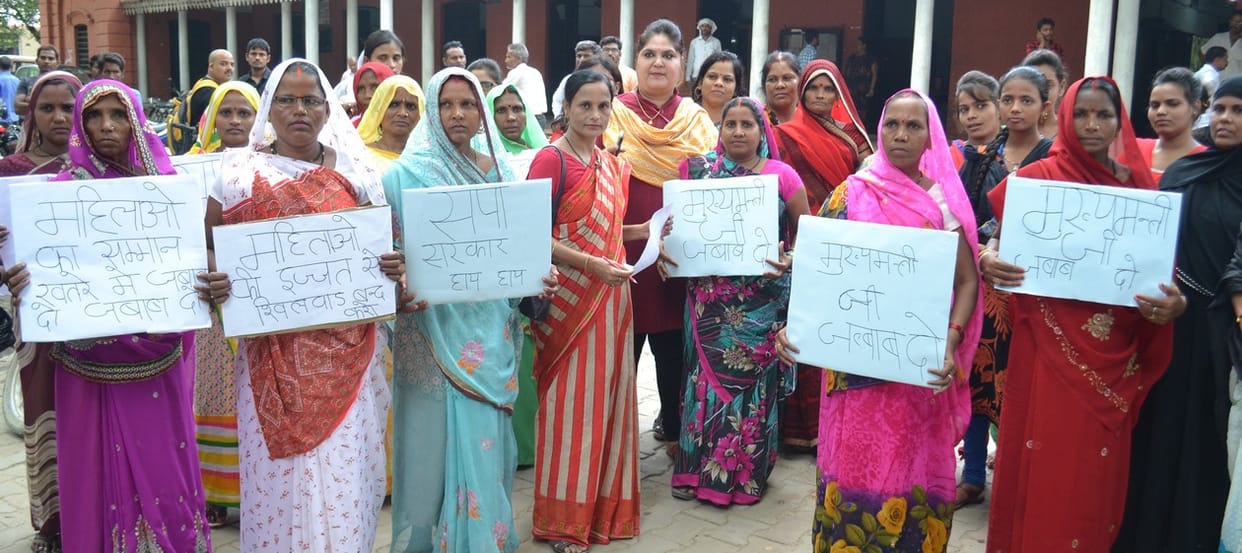 महिलाओ
का सम्मान
खतरे मे जबाब
दो जबाब दो
महिलाओ
की इज्जत से
खिलवाड बन्द
करो
सपा
सरकार
हाय हाय
मुख्यमन्त्री
जी
जबाब दो
मुख्यमन्ती
जी
जब्बाब दो
मुख्यमन्ती
जी
जबाब दो